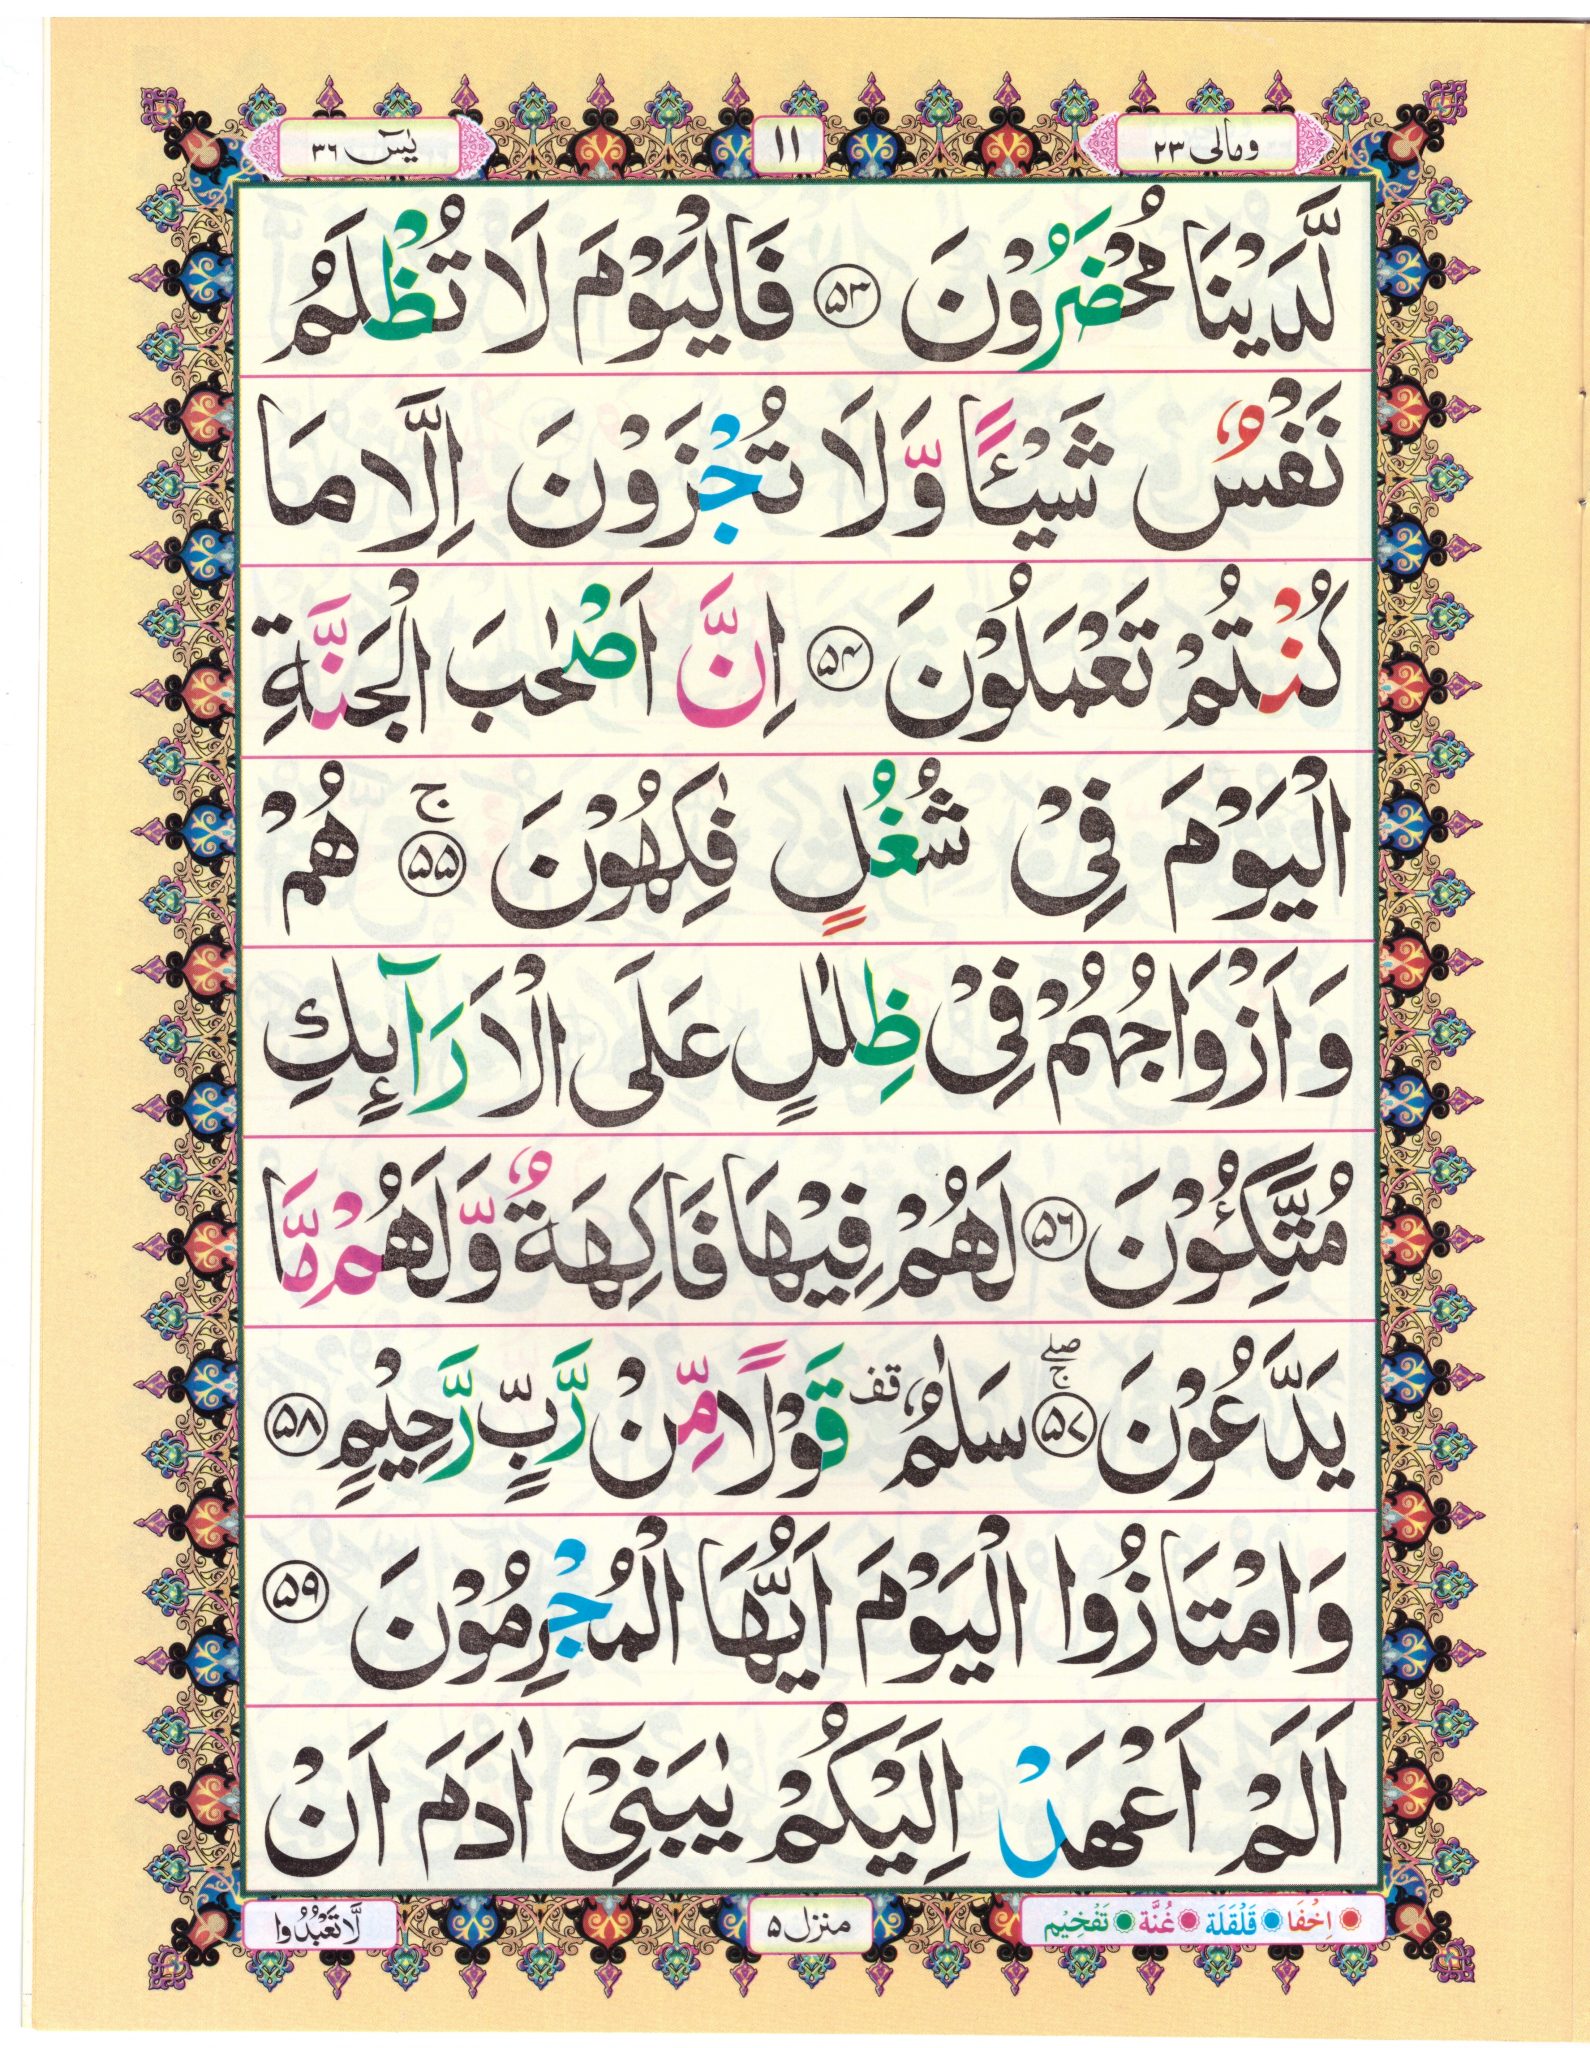 ومالی ۲۳
۱۱
یٰسٓ ۳۶
لَّدَيْنَا مُحْضَرُوْنَ ﴿۵۳﴾ فَالْيَوْمَ لَا تُظْلَمُ
نَفْسٌ شَيْـًٔا وَّلَا تُجْزَوْنَ اِلَّا مَا
كُنْتُمْ تَعْمَلُوْنَ ﴿۵۴﴾ اِنَّ اَصْحٰبَ الْجَنَّةِ
الْيَوْمَ فِيْ شُغُلٍ فٰكِهُوْنَ ﴿۵۵﴾ ج هُمْ
وَاَزْوَاجُهُمْ فِيْ ظِلٰلٍ عَلَى الْاَرَآىِٕكِ
مُتَّكِـُٔوْنَ ﴿۵۶﴾ لَهُمْ فِيْهَا فَاكِهَةٌ وَّلَهُمْ مَّا
يَدَّعُوْنَ ﴿۵۷﴾ ج صلے سَلٰمٌ قف قَوْلًا مِّنْ رَّبٍّ رَّحِيْمٍ ﴿۵۸﴾
وَامْتَازُوا الْيَوْمَ اَيُّهَا الْمُجْرِمُوْنَ ﴿۵۹﴾
اَلَمْ اَعْهَدْ اِلَيْكُمْ يٰبَنِيْٓ اٰدَمَ اَنْ
اِخْفَا قَلْقَلَة غُنَّة تَفْخِيْم
منزل ۵
لَّا تَعْبُدُوا